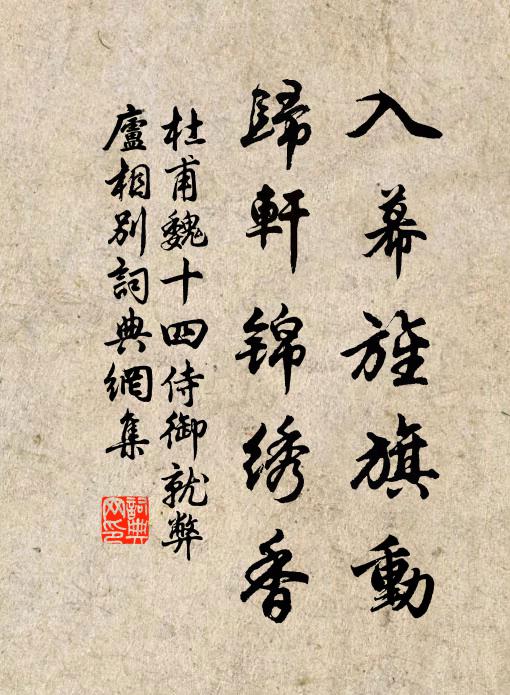 入幕旌旗動
歸軒錦绣香
杜甫魏十四侍御就弊
廬相別詞典網集
詞典
网印